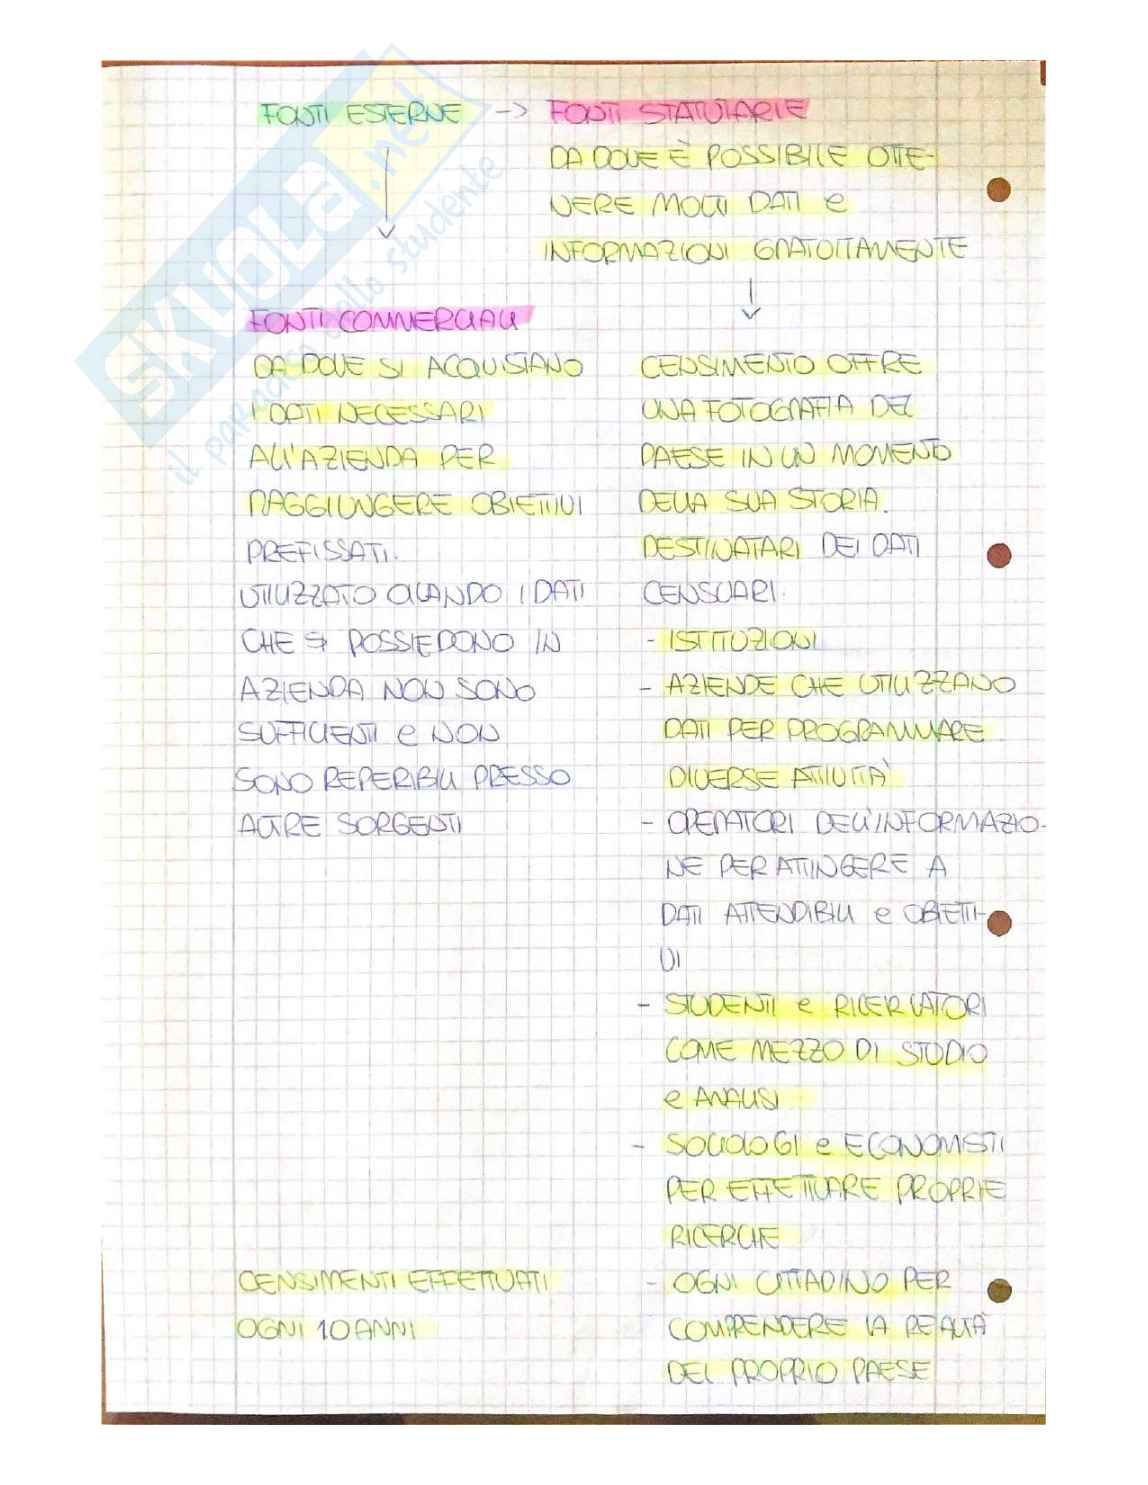 FONTI ESTERNE -> FONTI STATUTARIE
DA DOVE È POSSIBILE OTTE-
NERE MOLTI DATI e
INFORMAZIONI GRATUITAMENTE
FONTI COMMERCIALI
DA DOVE SI ACQUISTANO
I DATI NECESSARI
ALL'AZIENDA PER
RAGGIUNGERE OBIETTIVI
PREFISSATI.
UTILIZZATO QUANDO I DATI
CHE SI POSSIEDONO IN
AZIENDA NON SONO
SUFFICIENTI e NON
SONO REPERIBILI PRESSO
ALTRE SORGENTI
CENSIMENTO OFFRE
UNA FOTOGRAFIA DEL
PAESE IN UN MOMENTO
DELLA SUA STORIA.
DESTINATARI DEI DATI
CENSUARI.
- ISTITUZIONI
- AZIENDE CHE UTILIZZANO
DATI PER PROGRAMMARE
DIVERSE ATTIVITÀ
- OPERATORI DELL'INFORMAZIO-
NE PER ATTINGERE A
DATI ATTENDIBILI e OBIETTI-
VI
- STUDENTI e RICERCATORI
COME MEZZO DI STUDIO
e ANALISI
- SOCIOLOGI e ECONOMISTI
PER EFFETTUARE PROPRIE
RICERCHE
- OGNI CITTADINO PER
COMPRENDERE LA REALTÀ
DEL PROPRIO PAESE
CENSIMENTI EFFETTUATI
OGNI 10 ANNI
SKUOLA.net
il paradiso dello studente